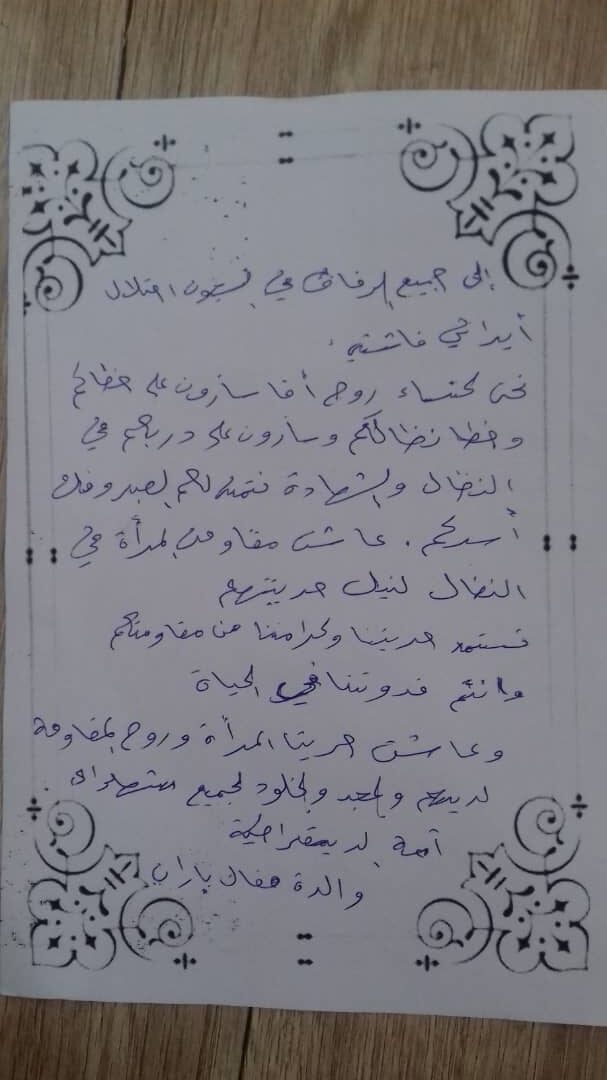 إلى جميع الرفاق في السجون احتلال
أيراني فاشتي.
نحن كنساء روج أفا سازون على خطاكم
وخطا نظالكم وسازون على دربكم في
النظال والشهادة نتمنه لكم الصبر وفك
أسركم. عاشت مقاومة المرأة في
النظال لنيل حريتهم
نستمد حريتنا وكرامتنا من مقاومتكم
وانتم قدوتنا في الحياة
وعاشت حريتا المرأة وروح المقاومة
لديهم والمجد والخلود لجميع شهداء
آمة لديمقراطية
والدة هفال باران